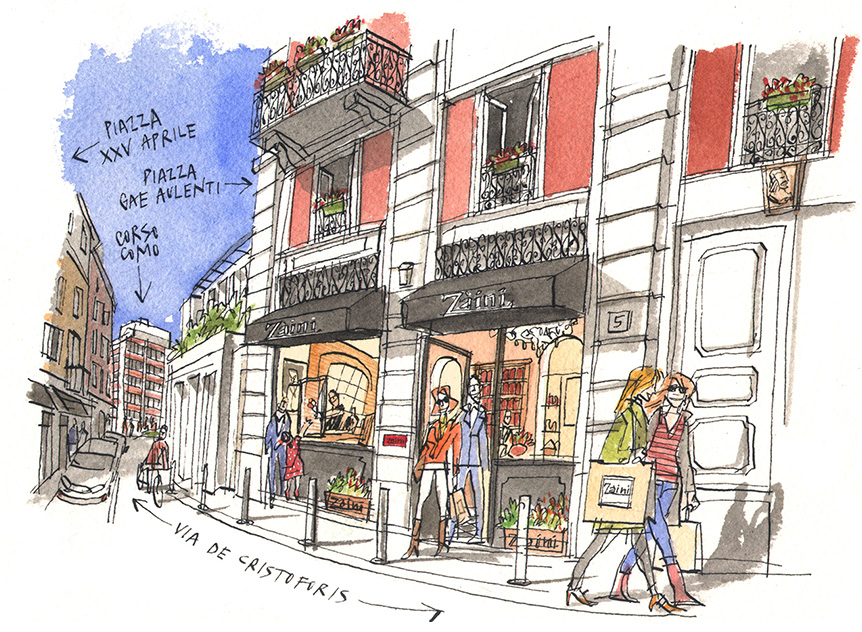 PIAZZA
XXV APRILE
PIAZZA
GAE AULENTI
CORSO
COMO
Zàini
Zàini
5
Zàini
zaini
Zaini
Zaini
VIA DE CRISTOFORIS